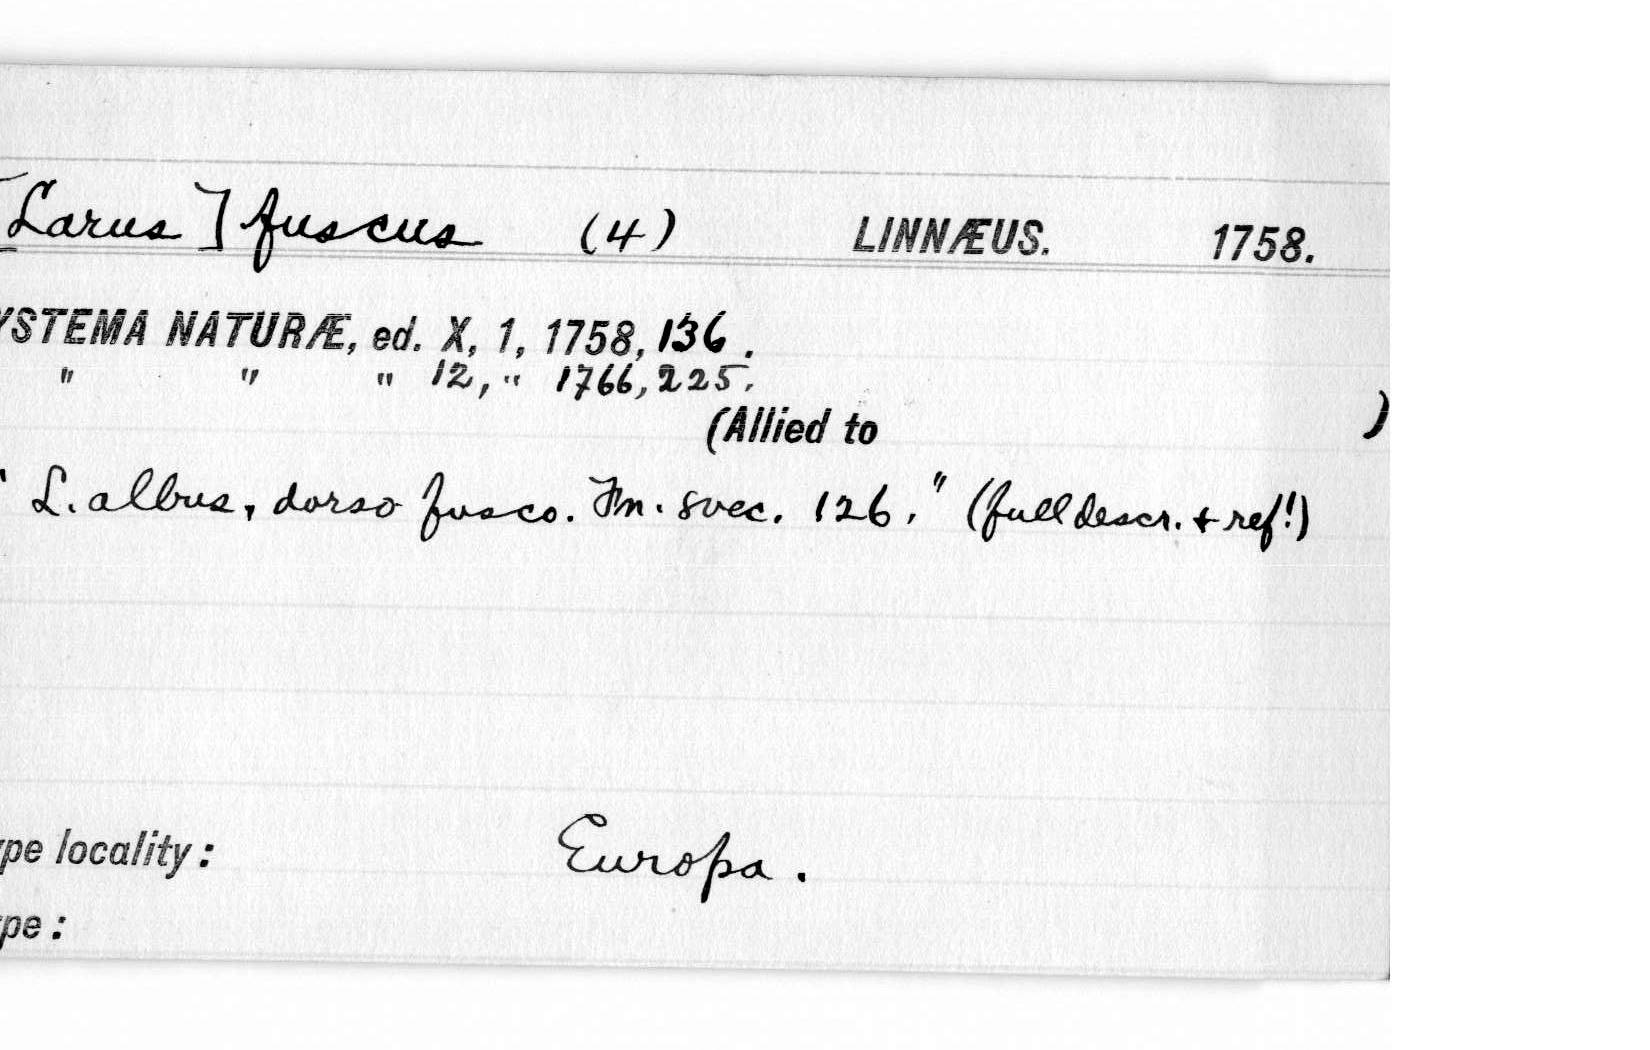 [Larus] fuscus (4) LINNÆUS. 1758.
YSTEMA NATURÆ, ed. X, 1, 1758, 136.
" " " 12, " 1766, 225.
(Allied to )
" L. albus, dorso fusco. Fn. svec. 126." (full descr. + ref!)
ype locality: Europa.
ype: